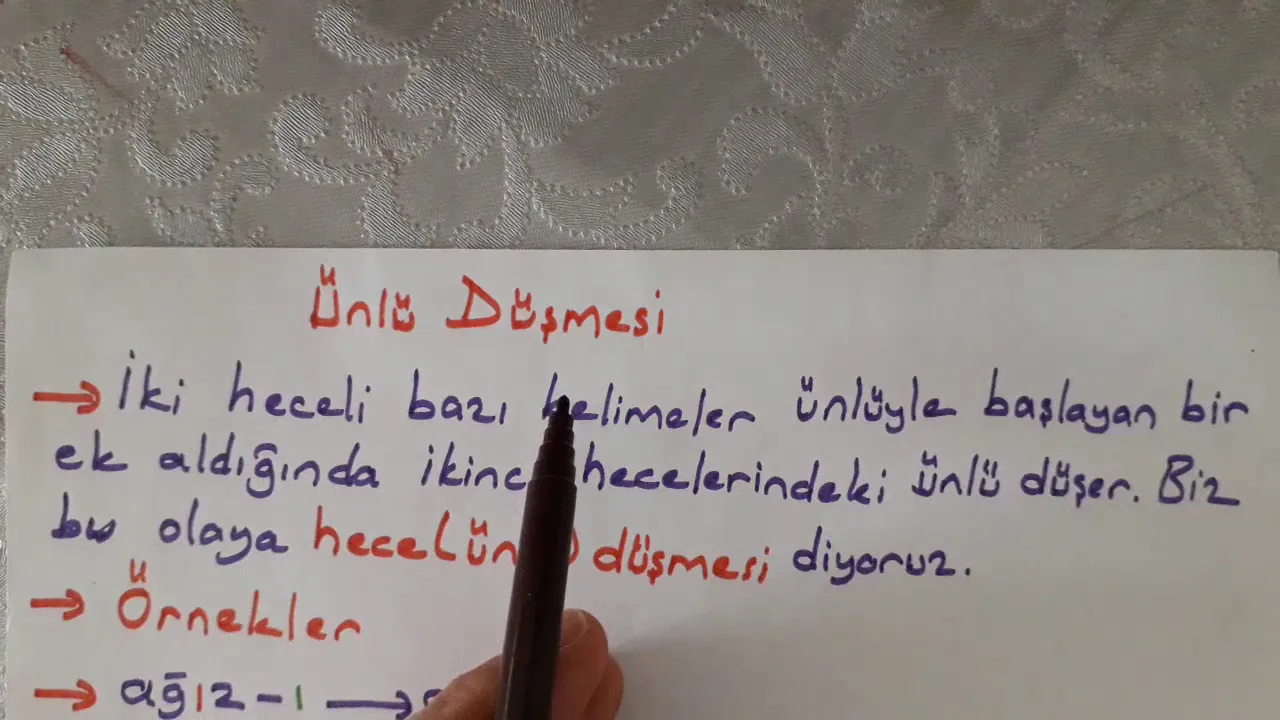 Ünlü Düşmesi
→ İki heceli bazı kelimeler ünlüyle başlayan bir
ek aldığında ikinc hecelerindeki ünlü düşer. Biz
bu olaya hece(ün ) düşmesi diyoruz.
→ Örnekler
→ ağız-ı →